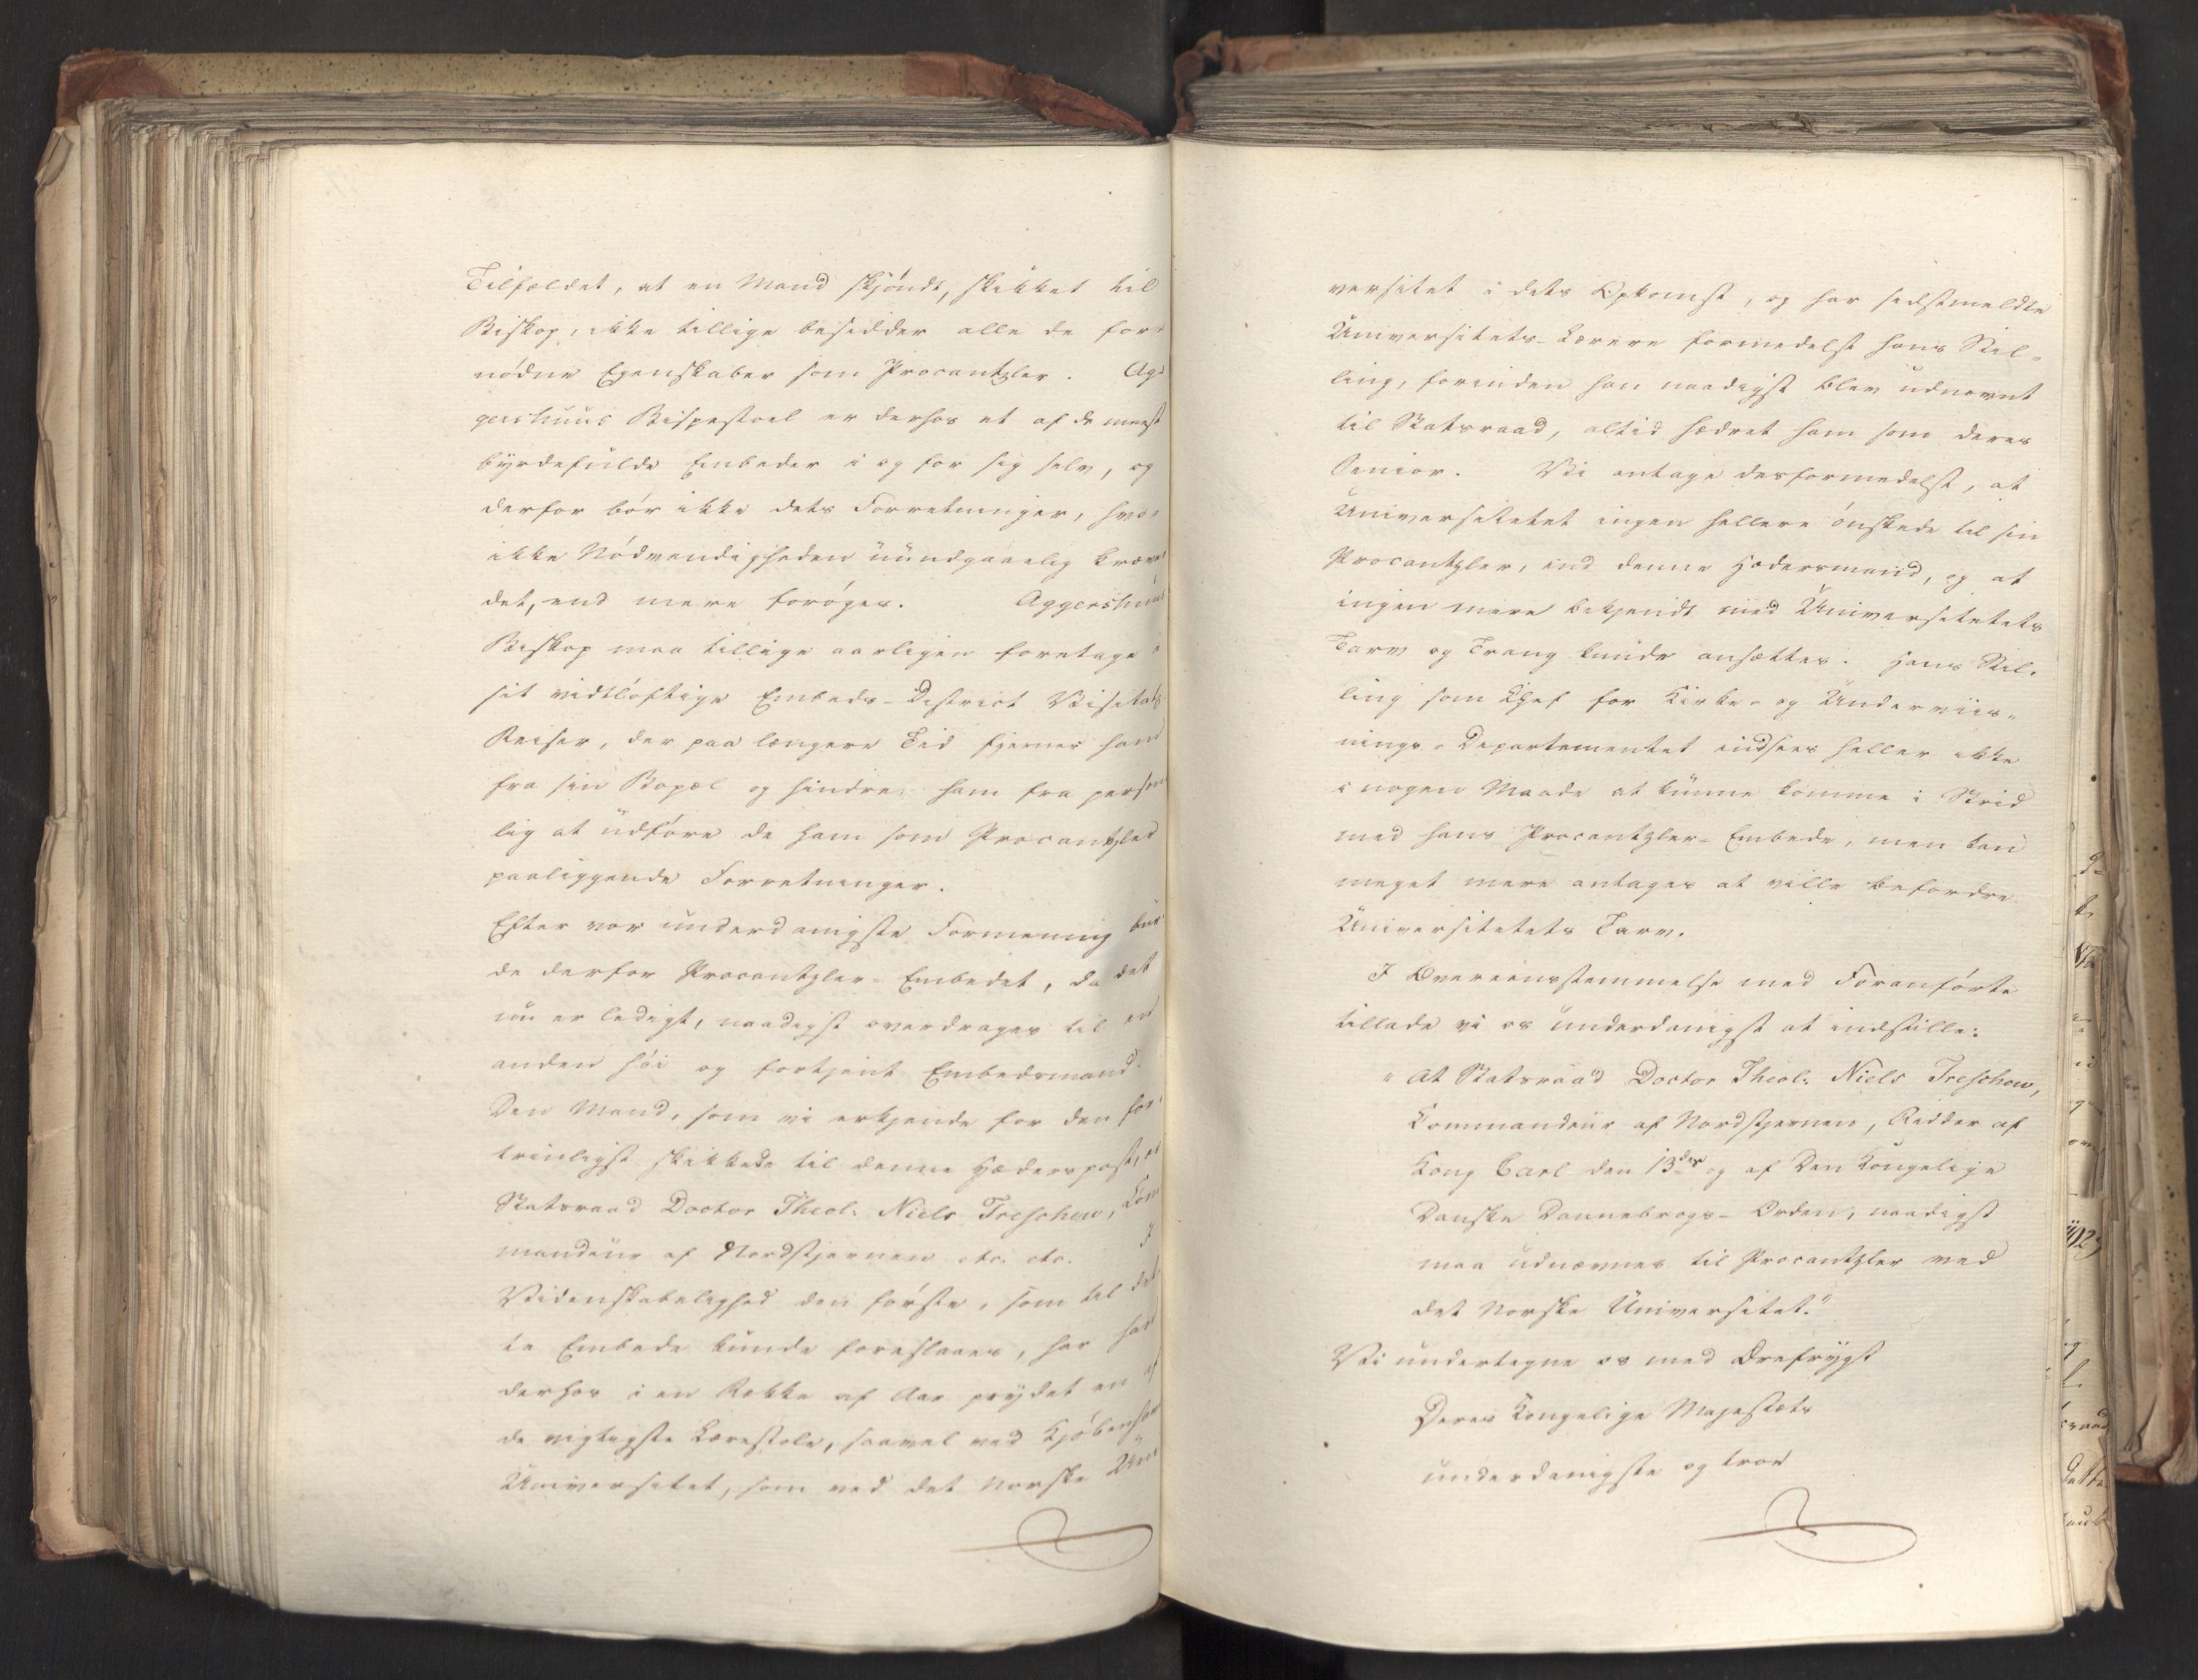 Tilfældet, at en Mand skjöndt, skikket til
Biskop, ikke tillige besidder alle de for-
nödne Egenskaber som Procantzler. Ag-
gershuus Bispestoel er derhos et af de meest
byrdefulde Embeder i og for sig selv, og
derfor bör ikke dets Forretninger, hvor
ikke Nödvendigheden uundgaaelig kræver
det, end mere foröges. Aggershuus
Biskop maa tillige aarligen foretage i
sit vidtlöftige Embeds-District Visitats
Reiser, der paa længere Tid fjerner ham
fra sin Bopæl og hindrer ham fra person
lig at udföre de ham som Procantzler
paaliggende Forretninger.
Efter vor underdanigste Formening bur-
de derfor Procantzler-Embedet, da det
nu er ledigt, naadigst overdrages til en
anden höi og fortjent Embedsmand.
Den Mand, som vi erkjende for den for-
trinligst skikkede til denne Hæderspost, er
Statsraad Doctor Theol: Niels Treschow, Com
mandeur af Nordstjernen etc. etc. I
Videnskabelighed den förste, som til det-
te Embede kunde foreslaaes, har han
derhos i en Række af Aar prydet en af
de vigtigste Lærestole, saavel ved Kjöbenhavns
Universitet, som ved det Norske Uni
versitet i dets Opkomst, og har sidstmeldte
Universitets-Lærere formedelst hans Stil-
ling, forinden han naadigst blev udnævnt
til Statsraad, altid hædret ham som deres
Senior. Vi antage desformedelst, at
Universitetet ingen hellere önskede til sin
Procantzler, end denne Hædersmand, og at
ingen mere bekjendt med Universitetets
Tarv og Trang kunde ansættes. Hans Stil-
ling som Chef for Kirke- og Underviis-
nings-Departementet indsees heller ikke
i nogen Maade at kunne komme i Strid
med hans Procantzler-Embede, men kan
meget mere antages at ville befordre
Universitetets Tarv.
I Overeensstemmelse med Foranförte
tillade vi os underdanigst at indstille:
"At Statsraad Doctor Theol: Niels Treschow,
Commandeur af Nordstjernen, Ridder af
Kong Carl den 13des og af Den Kongelige
Danske Dannebrogs-Orden, naadigst
maa udnævnes til Procantzler ved
det Norske Universitet."
Vi undertegne os med Ærefrygt
Deres Kongelige Majestæts
underdanigste og troe